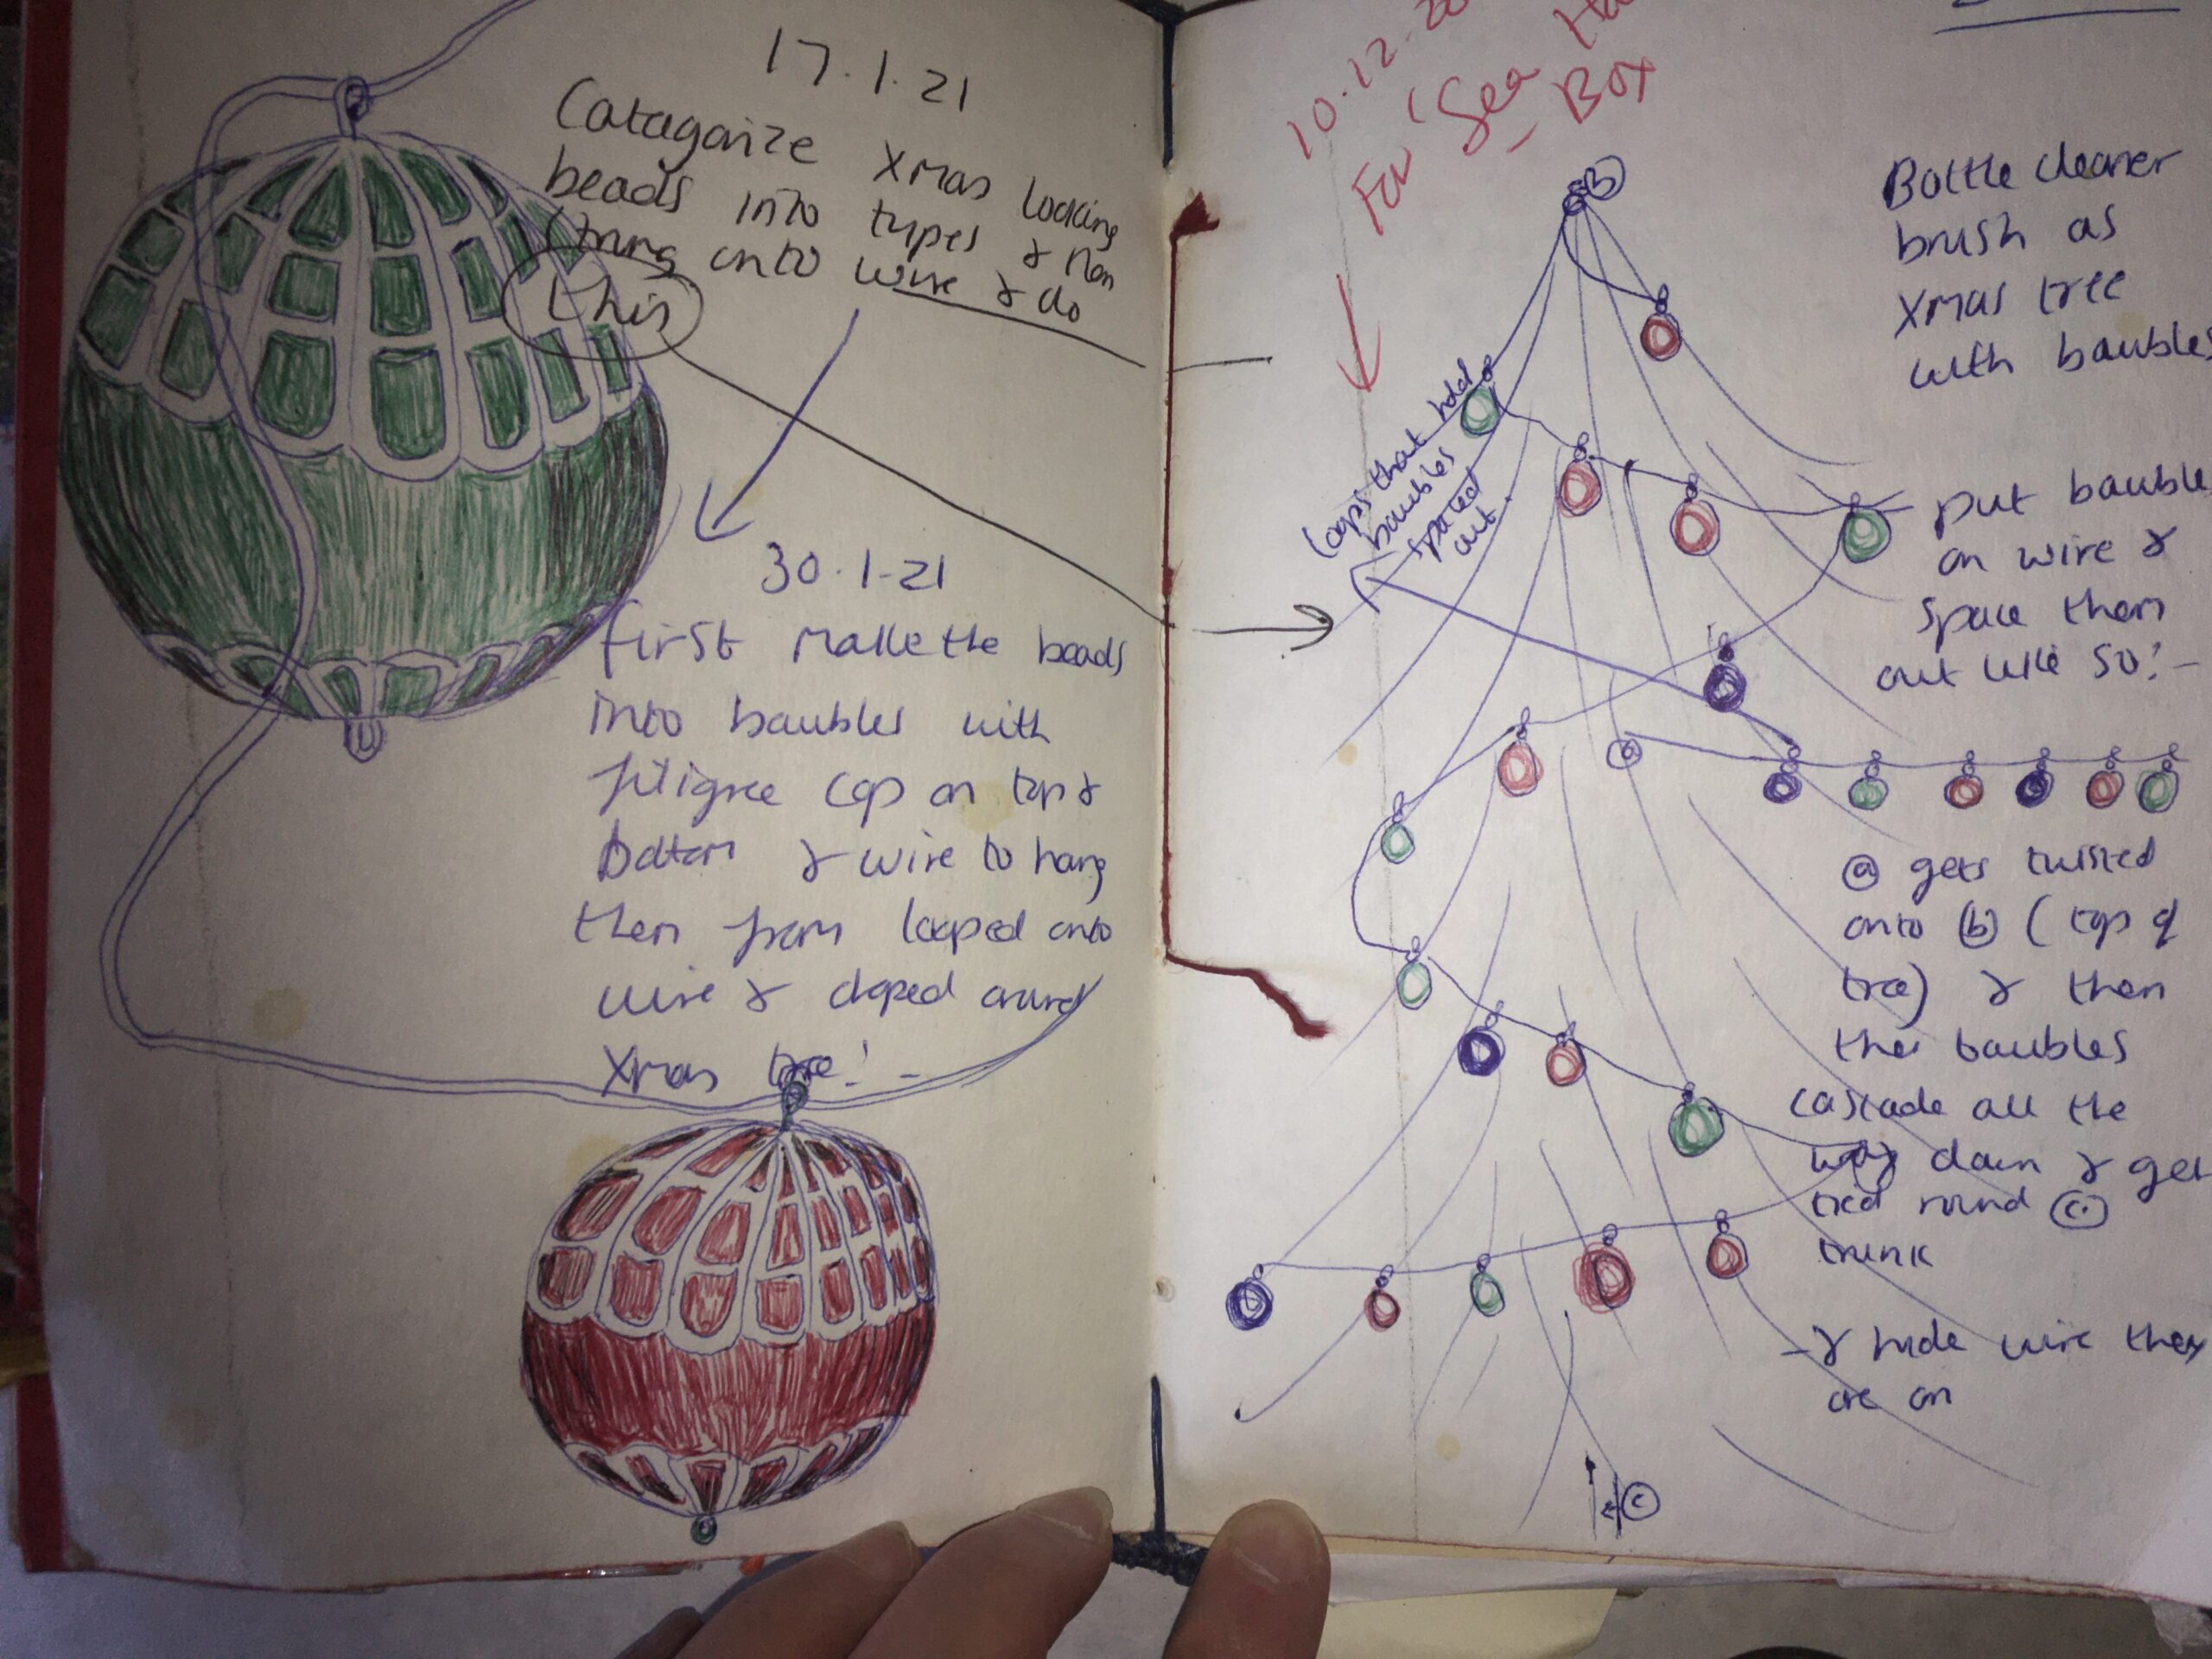 17.1.21
Catagorize Xmas looking
beads into types & then
hang onto wire & do
this
30.1.21
first make the beads
into baubles with
filigree cap on top &
bottom & wire to hang
them from looped onto
wire & draped around
Xmas tree! -
10.12.20
For 'Sea
- Box
Bottle cleaner
brush as
Xmas tree
with baubles
(b)
loops that hold
baubles
spaced
out.
put bauble
on wire &
space them
out like so:-
(a)
(a) gets twisted
onto (b) (top of
tree) & then
the baubles
cascade all the
way down & get
tied round (c)
trunk
- & hide wire they
are on
(c)